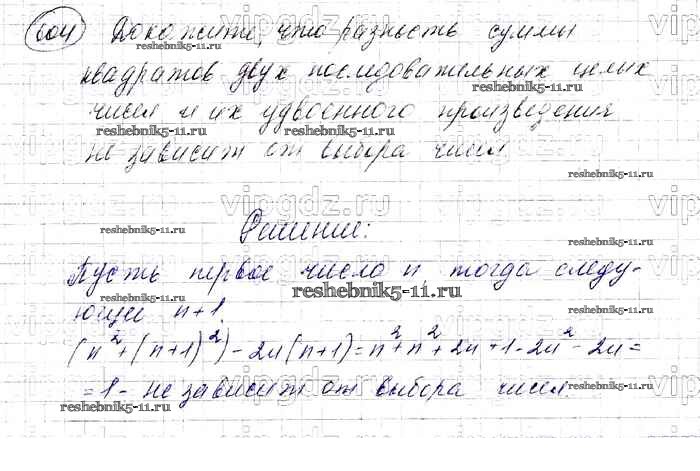 604 Докажите, что разность суммы
квадратов двух последовательных целых
чисел и их удвоенного произведения
не зависит от выбора чисел
Решение:
Пусть первое число n тогда следу-
ющее n+1.
(n²+(n+1)²)-2n(n+1)=n²+n²+2n+1-2n²-2n=
=1- не зависит от выбора чисел.